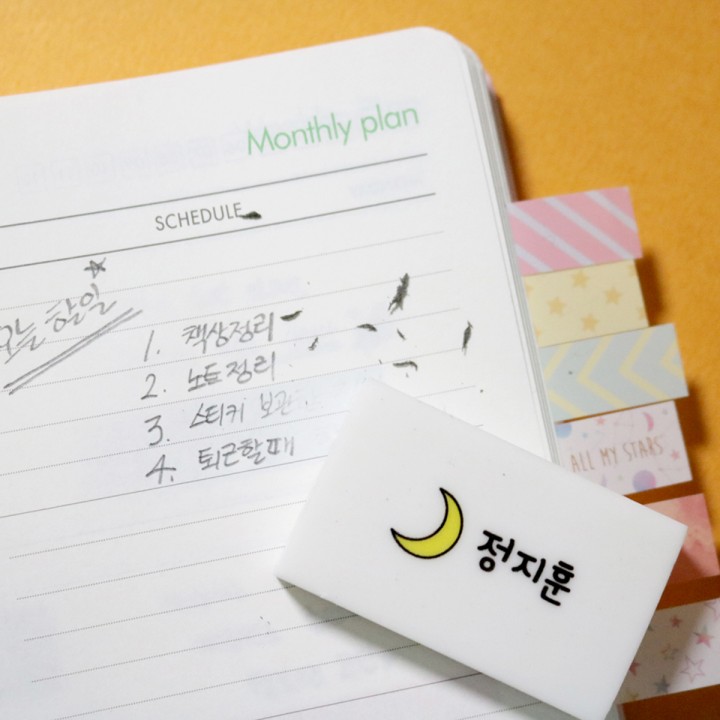 Monthly plan
SCHEDULE
오늘 할일
1. 책상정리
2. 노트정리
3. 스티커 보관
4. 퇴근할때
ALL MY STARS
정지훈